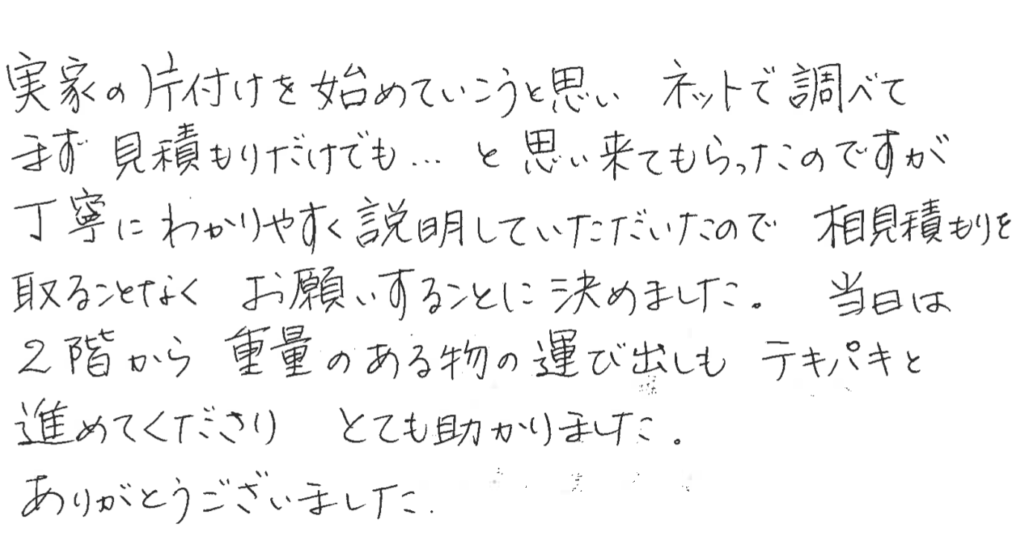 実家の片付けを始めていこうと思い ネットで調べて
まず 見積もりだけでも… と 思い来てもらったのですが
丁寧に わかりやすく説明していただいたので 相見積もりを
取ることなく お願いすることに決めました。 当日は
2階から 重量のある物の運び出しも テキパキと
進めてくださり とても助かりました。
ありがとうございました.